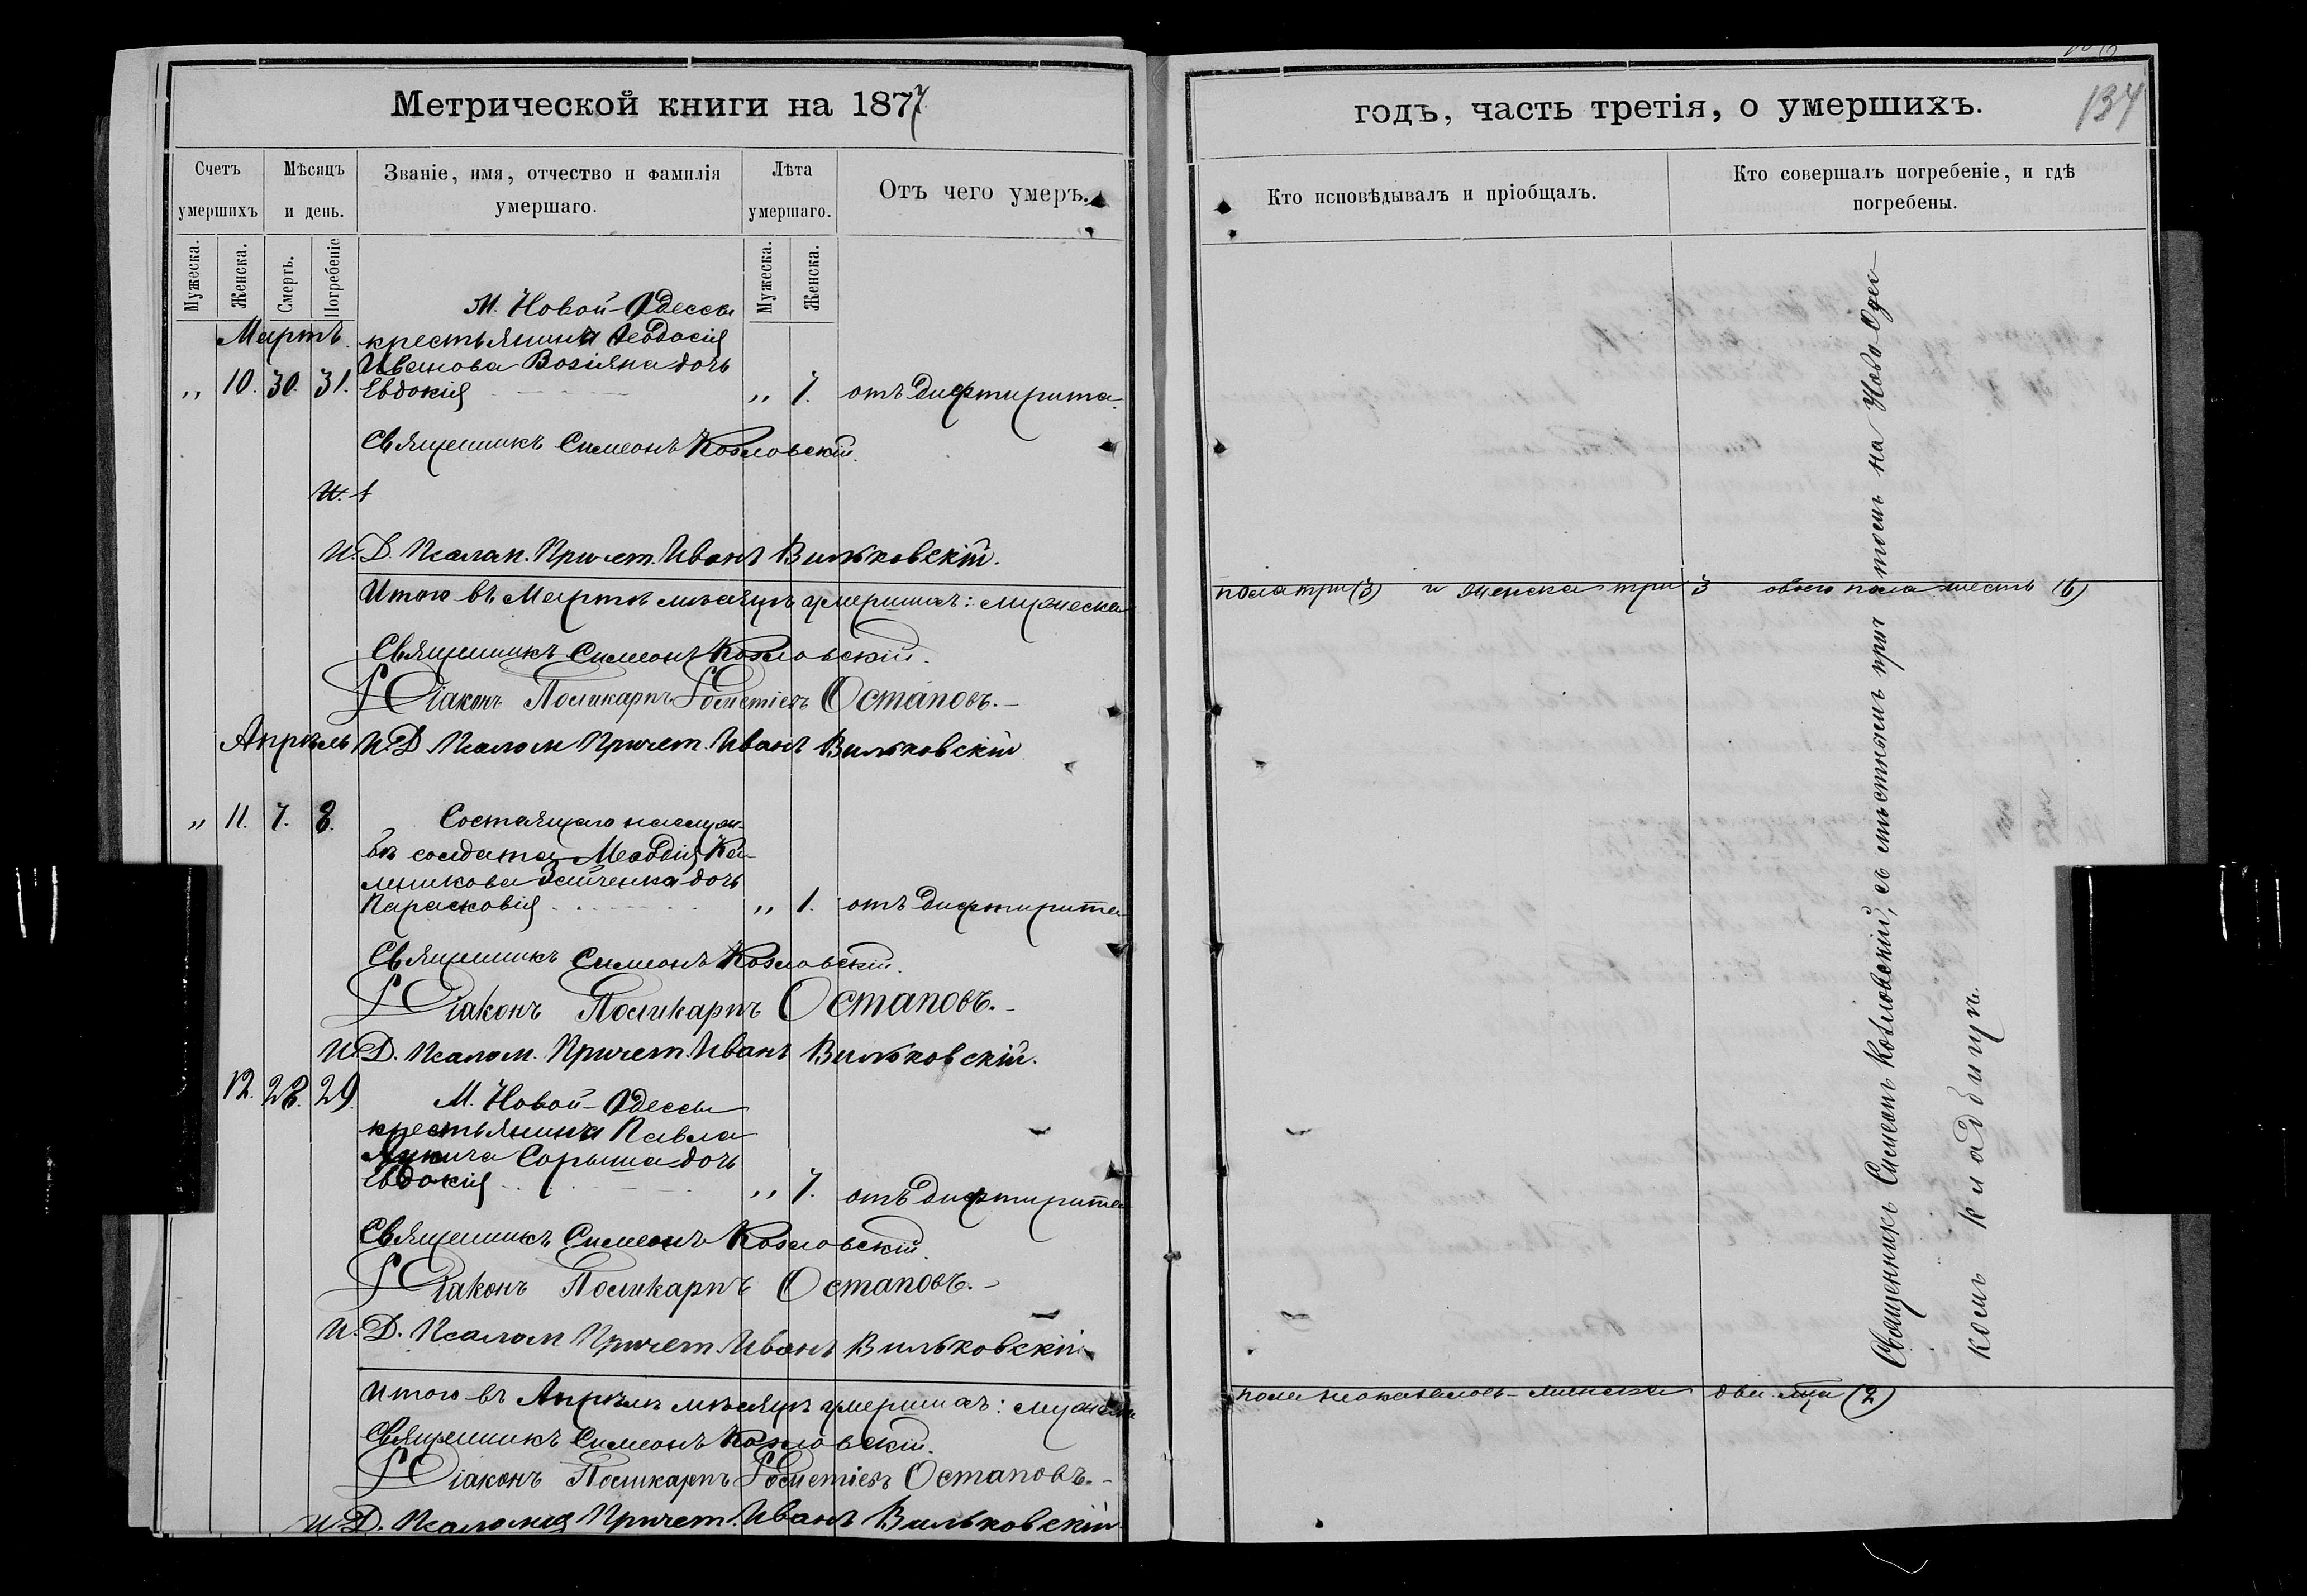 Метрической книги на 1877
годъ, часть третія, о умершихъ.
134
Счетъ умершихъ
Мѣсяцъ и день.
Званіе, имя, отчество и фамилія умершаго.
Лѣта умершаго.
Отъ чего умеръ.
Кто исповѣдывалъ и пріобщалъ.
Кто совершалъ погребеніе, и гдѣ погребены.
Мужеска.
Женска.
Смерть.
Погребеніе
Мужеска.
Женска.
Мартъ.
М. Новой-Одессы
крестьянина Ѳеодосія
Иванова Возіяна дочь
„ 10. 30. 31. Евдокія „ 7. отъ дифтирита.
Священникъ Симеонъ Козловскій.
И.
И. Д. Псалам. Причет. Иванъ Вильковскій.
Итого въ Мартѣ мѣсяцѣ умершихъ: мужеска
пола три (3) и женска три 3 обоего пола шесть (6)
Священникъ Симеонъ Козловскій.
Діаконъ Поликарпъ Остаповъ.
Апрѣль И. Д. Псалом Причет. Иванъ Вильковскій
„ 11. 7. 8. Состоящаго на служ-
бѣ солдата Меѳодія Ка-
леникова Зайченка дочь
Парасковія „ 1. отъ дифтирита
Священникъ Симеонъ Козловскій.
Діаконъ Поликарпъ Остаповъ.
И. Д. Псалом. Причет. Иванъ Вильковскій.
12. 28. 29. М. Новой-Одессы
крестьянина Павла
дочь
Евдокія „ 7. отъ дифтирита
Священникъ Симеонъ Козловскій.
Діаконъ Поликарпъ Остаповъ.
И. Д. Псалом Причет Иванъ Вильковскій
Итого въ Апрѣлѣ мѣсяцѣ умершихъ: мужеска
пола не оказалось - женска два (2)
Священникъ Симеонъ Козловскій.
Діаконъ Поликарпъ Остаповъ.
И. Д. Псаломщ Причет. Иванъ Вильковскій
Священникъ Симеонъ Козловскій, съ мѣстнымъ причтомъ на Ново-Одес-
комъ кладбищѣ.